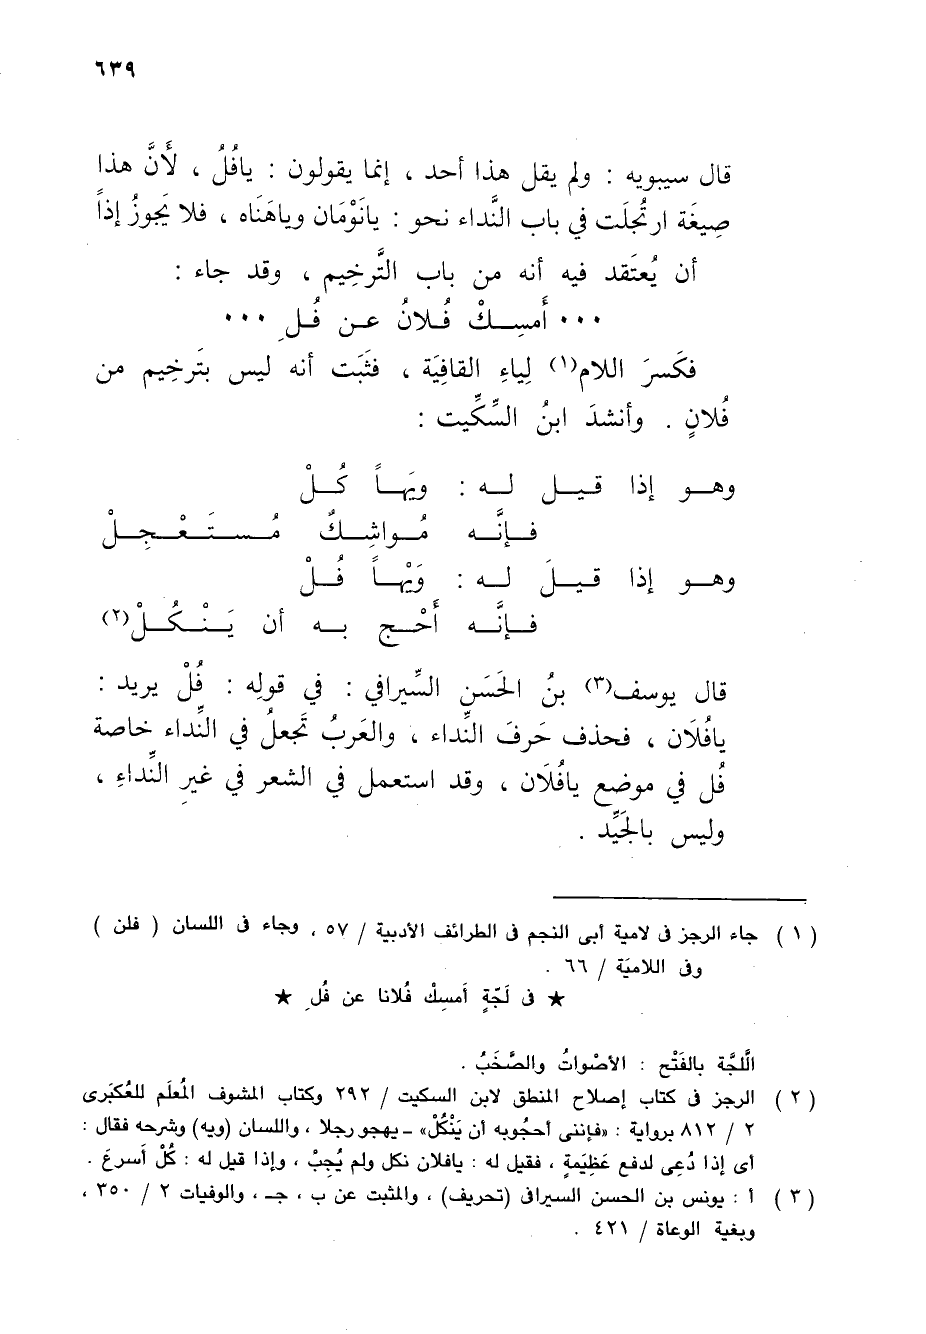 ٦٣٩
قال سيبويه : ولم يقل هذا أحد ، إنما يقولون : يافُلُ ، لأَنَّ هذا
صِيغَة ارتُجلَت في باب النَّداء نحو : يانَوْمَان وياهَناه ، فلا يَجوزُ إذاً
أن يُعتَقد فيه أنه من باب التَّرخِيم ، وقد جاء :
... أَمسِكْ فُلانُ عن فُلِ ...
فكَسرَ اللام(١) لِياءِ القافِيَة ، فثَبَت أنه ليس بتَرخِيم من
فُلانٍ . وأنشدَ ابنُ السِّكِّيت :
وهو إذا قيل له : ويَهاً كُلْ
فإنَّه مُواشِكٌ مُستَعْجِلْ
وهو إذا قيلَ له : وَيْهاً فُلْ
فإنَّه أَحْجِ به أن يَنْكُلْ(٢)
قال يوسف(٣) بنُ الحَسَن السِّيرافي : في قوله : فُلْ يريد :
يافُلَان ، فحذف حَرفَ النِّداء ، والعَربُ تَجعلُ في النِّداء خاصة
فُل في موضع يافُلَان ، وقد استعمل في الشعر في غيرِ النِّداءِ ،
وليس بالجَيِّد .
( ١ ) جاء الرجز فى لامية أبى النجم فى الطرائف الأدبية / ٥٧ ، وجاء فى اللسان ( فلن )
وفى اللاميَة / ٦٦ .
★ فى لَجَّةٍ أَمسِكْ فُلانا عن فُلِ ★
اللَّجَّة بالفَتْح : الأصْواتُ والصَّخَبُ .
( ٢ ) الرجز فى كتاب إصلاح المنطق لابن السكيت / ٢٩٢ وكتاب المشوف المُعلَم للعُكبَرى
٢ / ٨١٢ برواية : «فإننى أحجُوبه أن يَنْكُلْ» ـ يهجو رجلا ، واللسان (ويه) وشرحه فقال :
أى إذا دُعِى لدفع عَظِيمَةٍ ، فقيل له : يافلان نكل ولم يُجِبْ ، وإذا قيل له : كُلْ أَسرعَ .
( ٣ ) أ : يونس بن الحسن السيرافى (تحريف) ، والمثبت عن ب ، جـ ، والوفيات ٢ / ٣٥٠ ،
وبغية الوعاة / ٤٢١ .